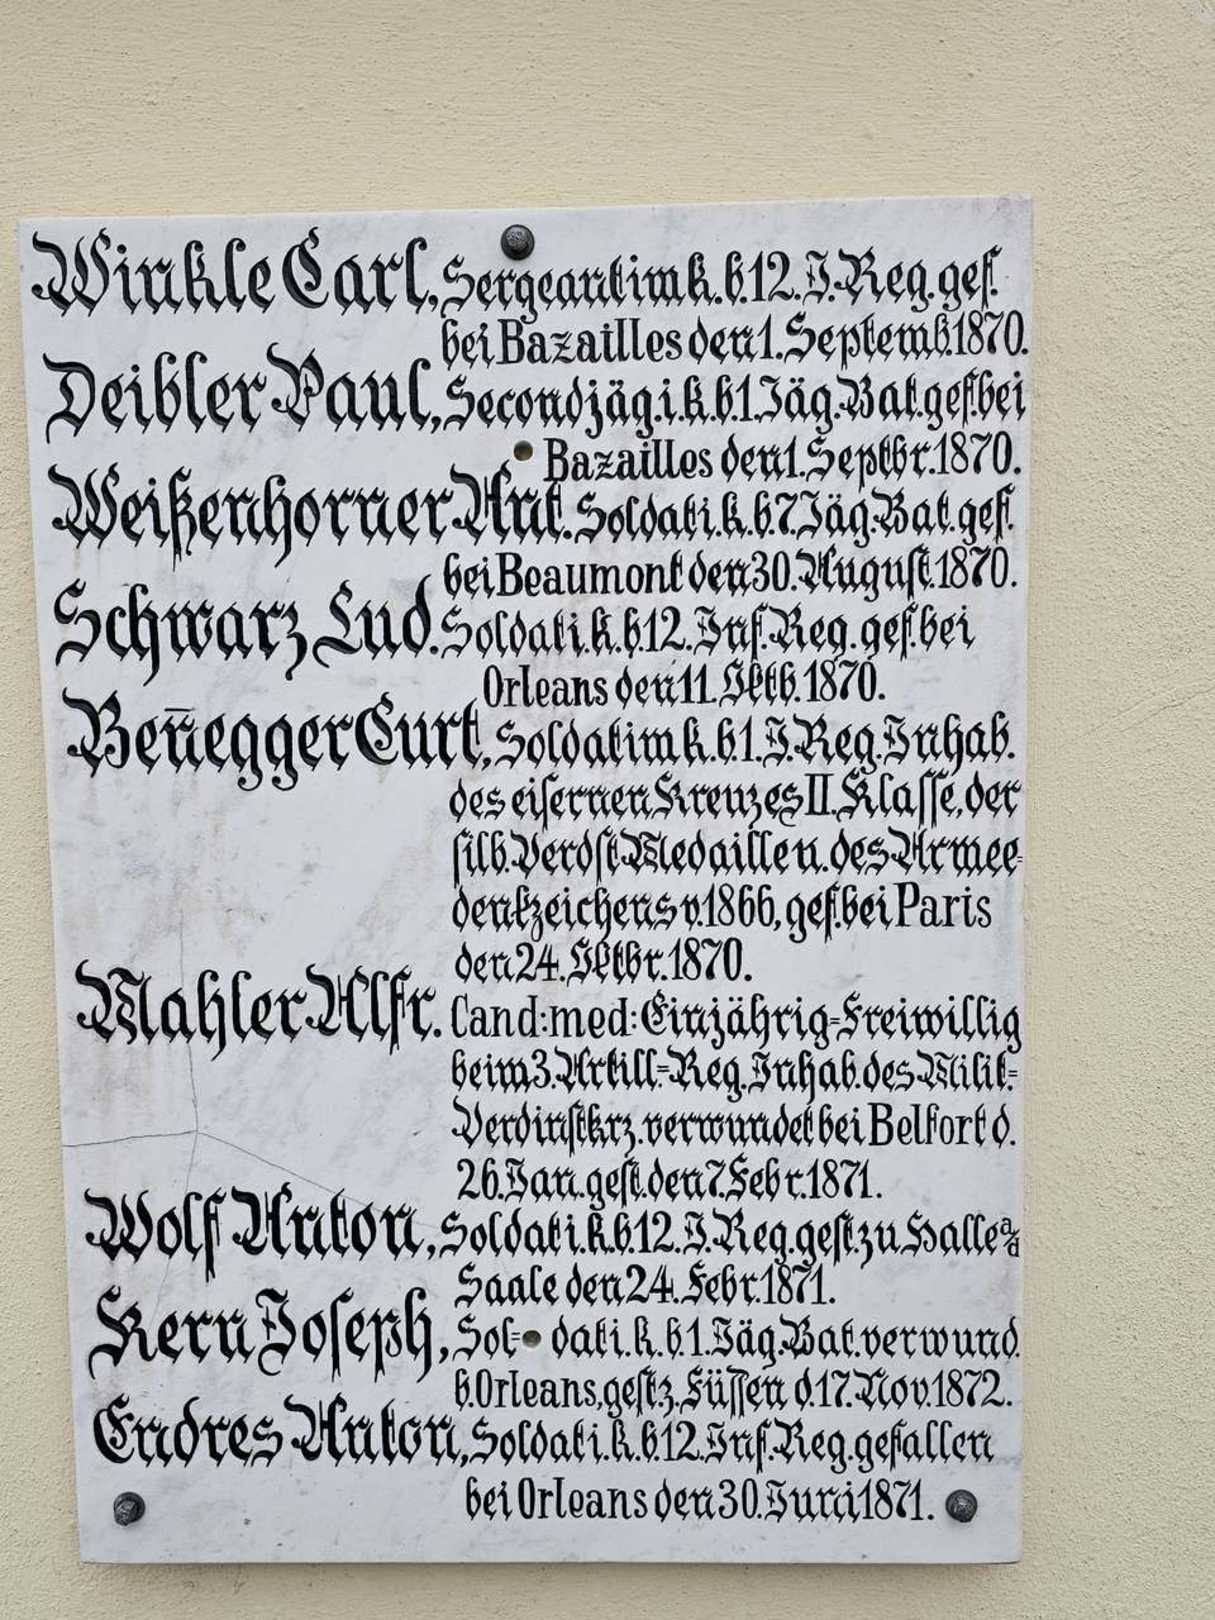 Winkle Carl, Sergeant im k. b. 12. I. Reg. gef.
bei Bazailles den 1. Septemb. 1870.
Deibler Paul, Secondjäg. i. k. b. 1. Jäg. Bat. gef. bei
Bazailles den 1. Septbr. 1870.
Weißenhorner Ant. Soldat i. k. b. 7. Jäg. Bat. gef.
bei Beaumont den 30. August. 1870.
Schwarz Lud. Soldat i. k. b. 12. Inf. Reg. gef. bei
Orleans den 11. Oktb. 1870.
Ben̄egger Curt, Soldat im k. b. 1. I. Reg. Inhab.
des eisernen Kreuzes II. Klasse, der
silb. Verdst. Medaille u. des Armee-
denkzeichens v. 1866, gef. bei Paris
den 24. Oktbr. 1870.
Mahler Alfr. Cand: med: Einjährig-Freiwillig
beim 3. Artill.-Reg. Inhab. des Milit.-
Verdinstkrz. verwundet bei Belfort d.
26. Jan. gest. den 7. Febr. 1871.
Wolf Anton, Soldat i. k. b. 12. I. Reg. gest. zu Halle a/d
Saale den 24. Febr. 1871.
Kern Joseph, Sol- dat i. k. b. 1. Jäg. Bat. verwund.
b. Orleans, gest. z. Füssen d. 17. Nov. 1872.
Endres Anton, Soldat i. k. b. 12. Inf. Reg. gefallen
bei Orleans den 30. Juni 1871.